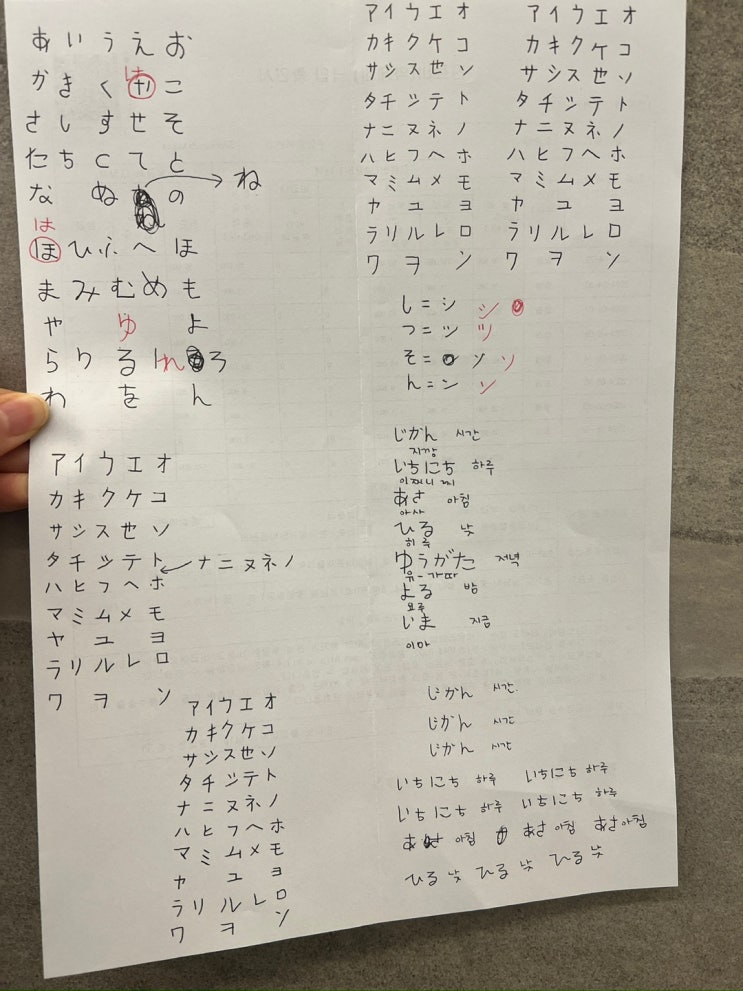 あいうえお
かきくサこ
け
さしすせそ
たちcてと
なぬの
ね
は
ほひふへほ
まみむめも
やゆよ
らりるれろ
わをん
アイウエオ
カキクケコ
サシスセソ
タチツテト
ナニヌネノ
ハヒフヘホ
マミムメモ
ヤユヨ
ラリルレロ
ワヲン
アイウエオ
カキクケコ
サシスセソ
タチツテト
ナニヌネノ
ハヒフヘホ
マミムメモ
ヤユヨ
ラリルレロ
ワヲン
アイウエオ
カキクケコ
サシスセソ
タチツテト
ナニヌネノ
ハヒフヘホ
マミムメモ
ヤユヨ
ラリルレロ
ワヲン
アイウエオ
カキクケコ
サシスセソ
タチツテト
ナニヌネノ
ハヒフヘホ
マミムメモ
ヤユヨ
ラリルレロ
ワヲン
し=シ シ
つ=ツ ツ
そ=ソ ソ
ん=ン ン
じかん 시간
지깡
いちにち 하루
이찌니찌
あさ 아침
아사
ひる 낮
히루
ゆうがた 저녁
유-가따
よる 밤
요루
いま 지금
이마
じかん 시간
じかん 시간
じかん 시간
いちにち 하루 いちにち 하루
いちにち 하루 いちにち 하루
あさ 아침 あさ 아침 あさ 아침
ひる 낮 ひる 낮 ひる 낮